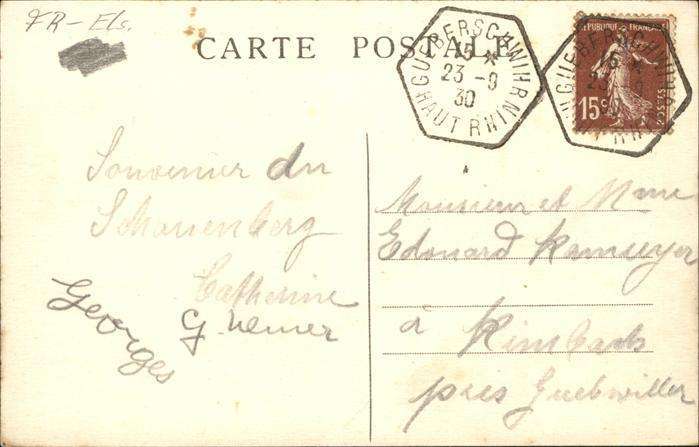 FR-Els.
CARTE POSTALE
GUEBERSCHWIHR
15 *
23 -9
30
HAUT RHIN
GUEBERSCHWIHR
15 *
23 -9
RÉPUBLIQUE FRANÇAISE
15c
POSTES
Souvenir du
Schauenberg
Catherine
Georges
Monsieur et Mme
Edouard
à Rimbach
près Guebwiller